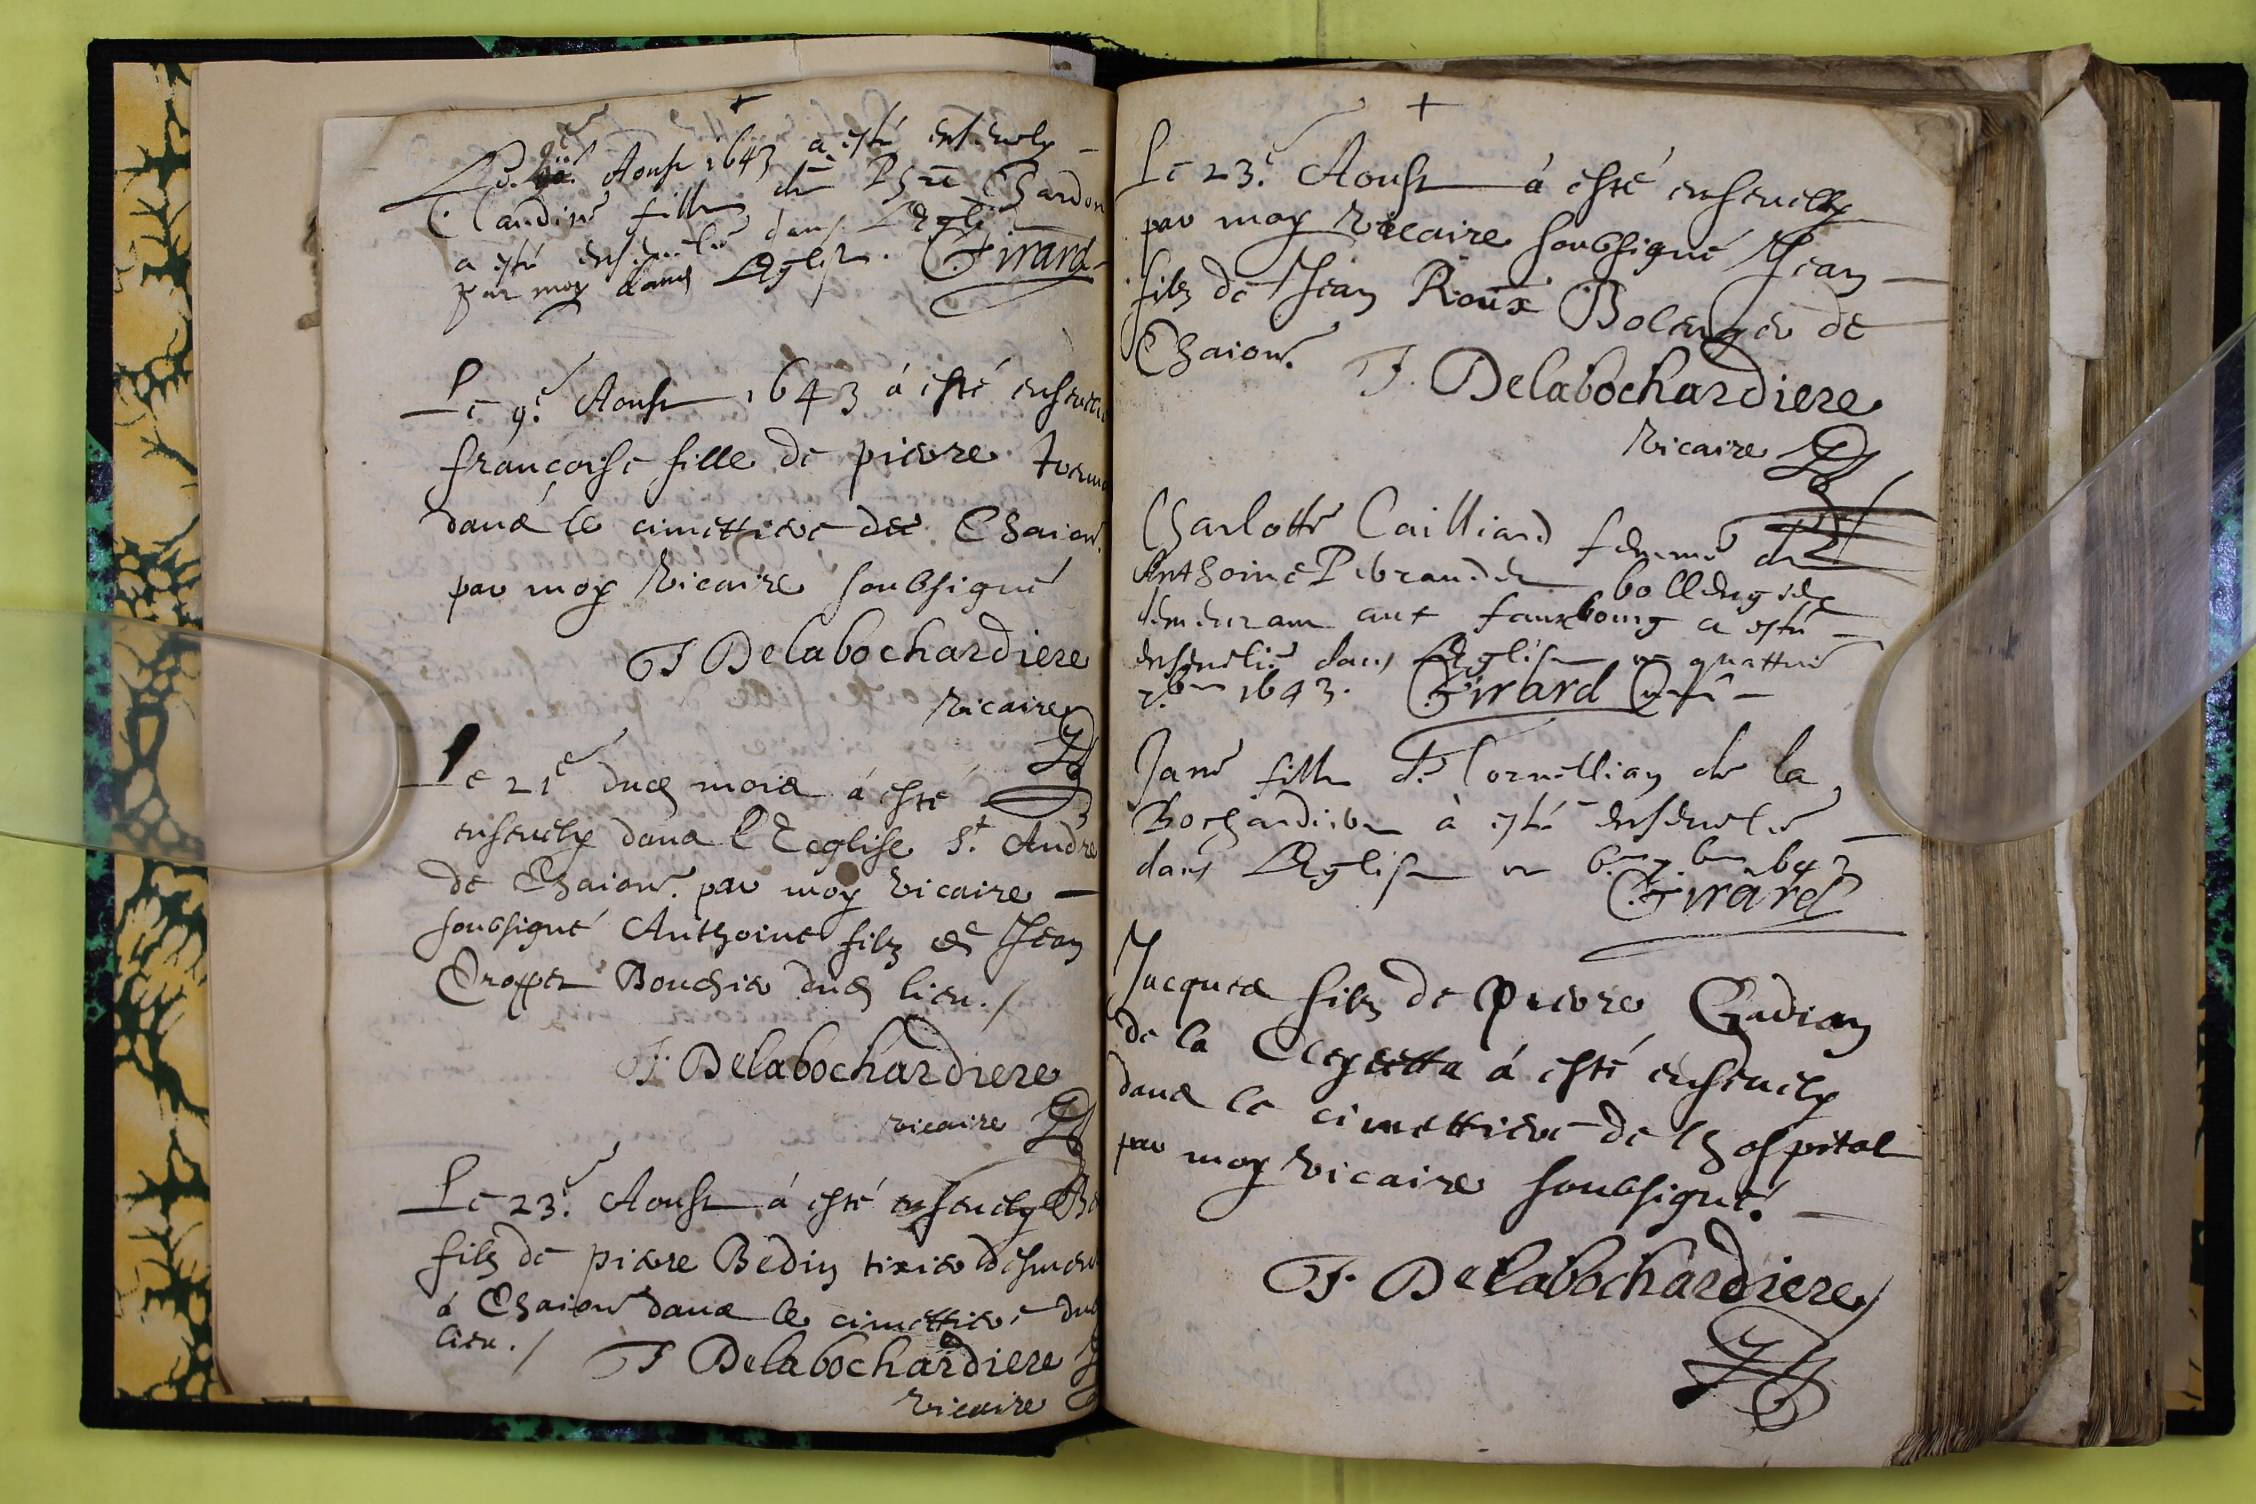 +
Le 9e Aoust 1643 a esté ensevely
Claudine fille de Phē Chardon
a esté ensevelie dans L'Egli
par moy dans L'Eglise. Girard
Le 9e Aoust 1643 á esté ensevely
françoise fille de pierre
dans le cimettiere de Chaion.
par moy vicaire soubsigné
F Delabochardiere
vicaire
Le 21e dud moia á esté
ensevely dans l'Eeglise St. André
de Chaion. par moy vicaire
soubsigné Anthoine filz de Jean
Bouchier dud lieu./
F. Delabochardiere
vicaire
Le 23e. Aoust á esté ensevely Be
filz de pierre Bedin tixier demeu
á Chaion dans le cimettiere dud
lieu./ F Delabochardiere
vicaire
+
Le 23e. Aoust á esté ensevely
par moy vicaire soubsigné Jean
filz de Jean Roux Bolenger de
Chaion. F. Delabochardiere
vicaire
Charlotte Cailliard femme de
Anthoine bollengier
demeurant aux fauxbourg a esté
ensevelie dans L'Eglise ce quattre
7.bre 1643. Girard Curé
Jane fille de Cornellian de la
Bochardiere à esté ensevelie
dans L'Eglise ce 6.me 7.bre 1643
Girard
Jacques filz de pierre Gadian
de la á esté ensevely
dans le cimettiere de l'hospital
par moy vicaire soubsigné.
F. Delabochardiere